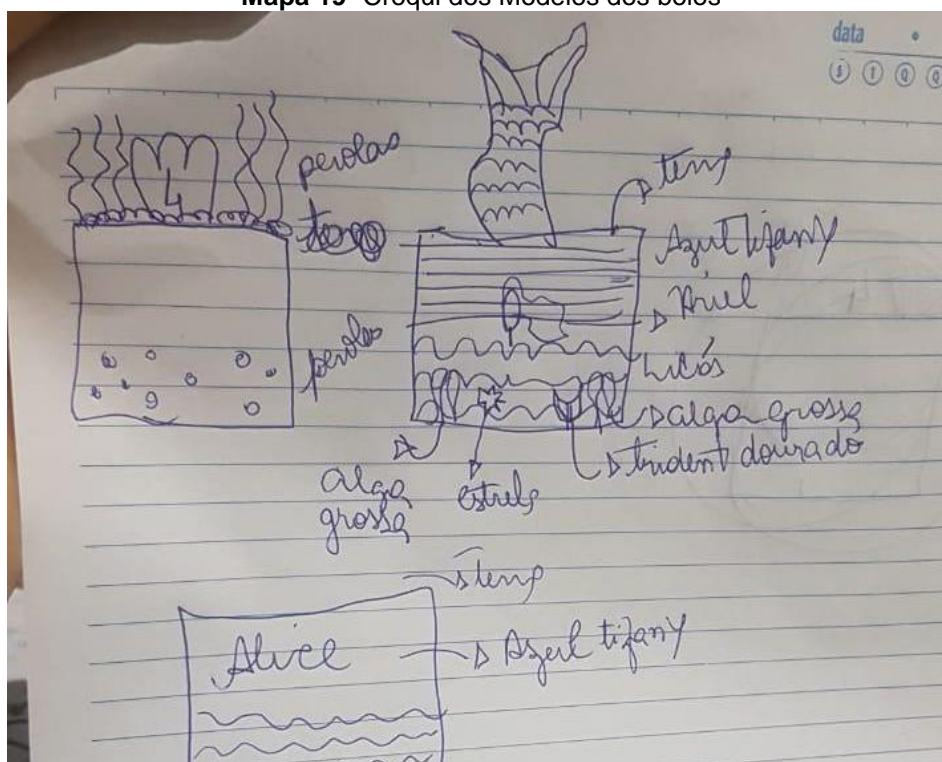 Mapa 19- Croqui dos Modelos dos bolos
data
S T Q Q
perolas
4
Azul tifany
Ariel
perolas
alga grossa
trident dourado
alga
grossa
estrela
Alice
Azul tifany